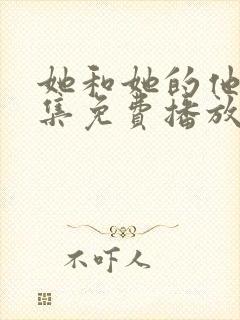 她和她的他
集免費播放
不吓人